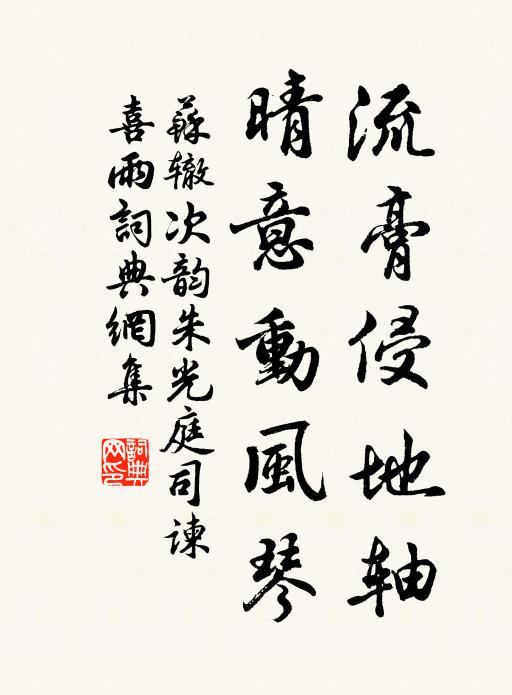 流膏侵地轴
晴意動風琴
蘇辙次韵朱光庭司諫
喜雨詞典網集
詞典网印